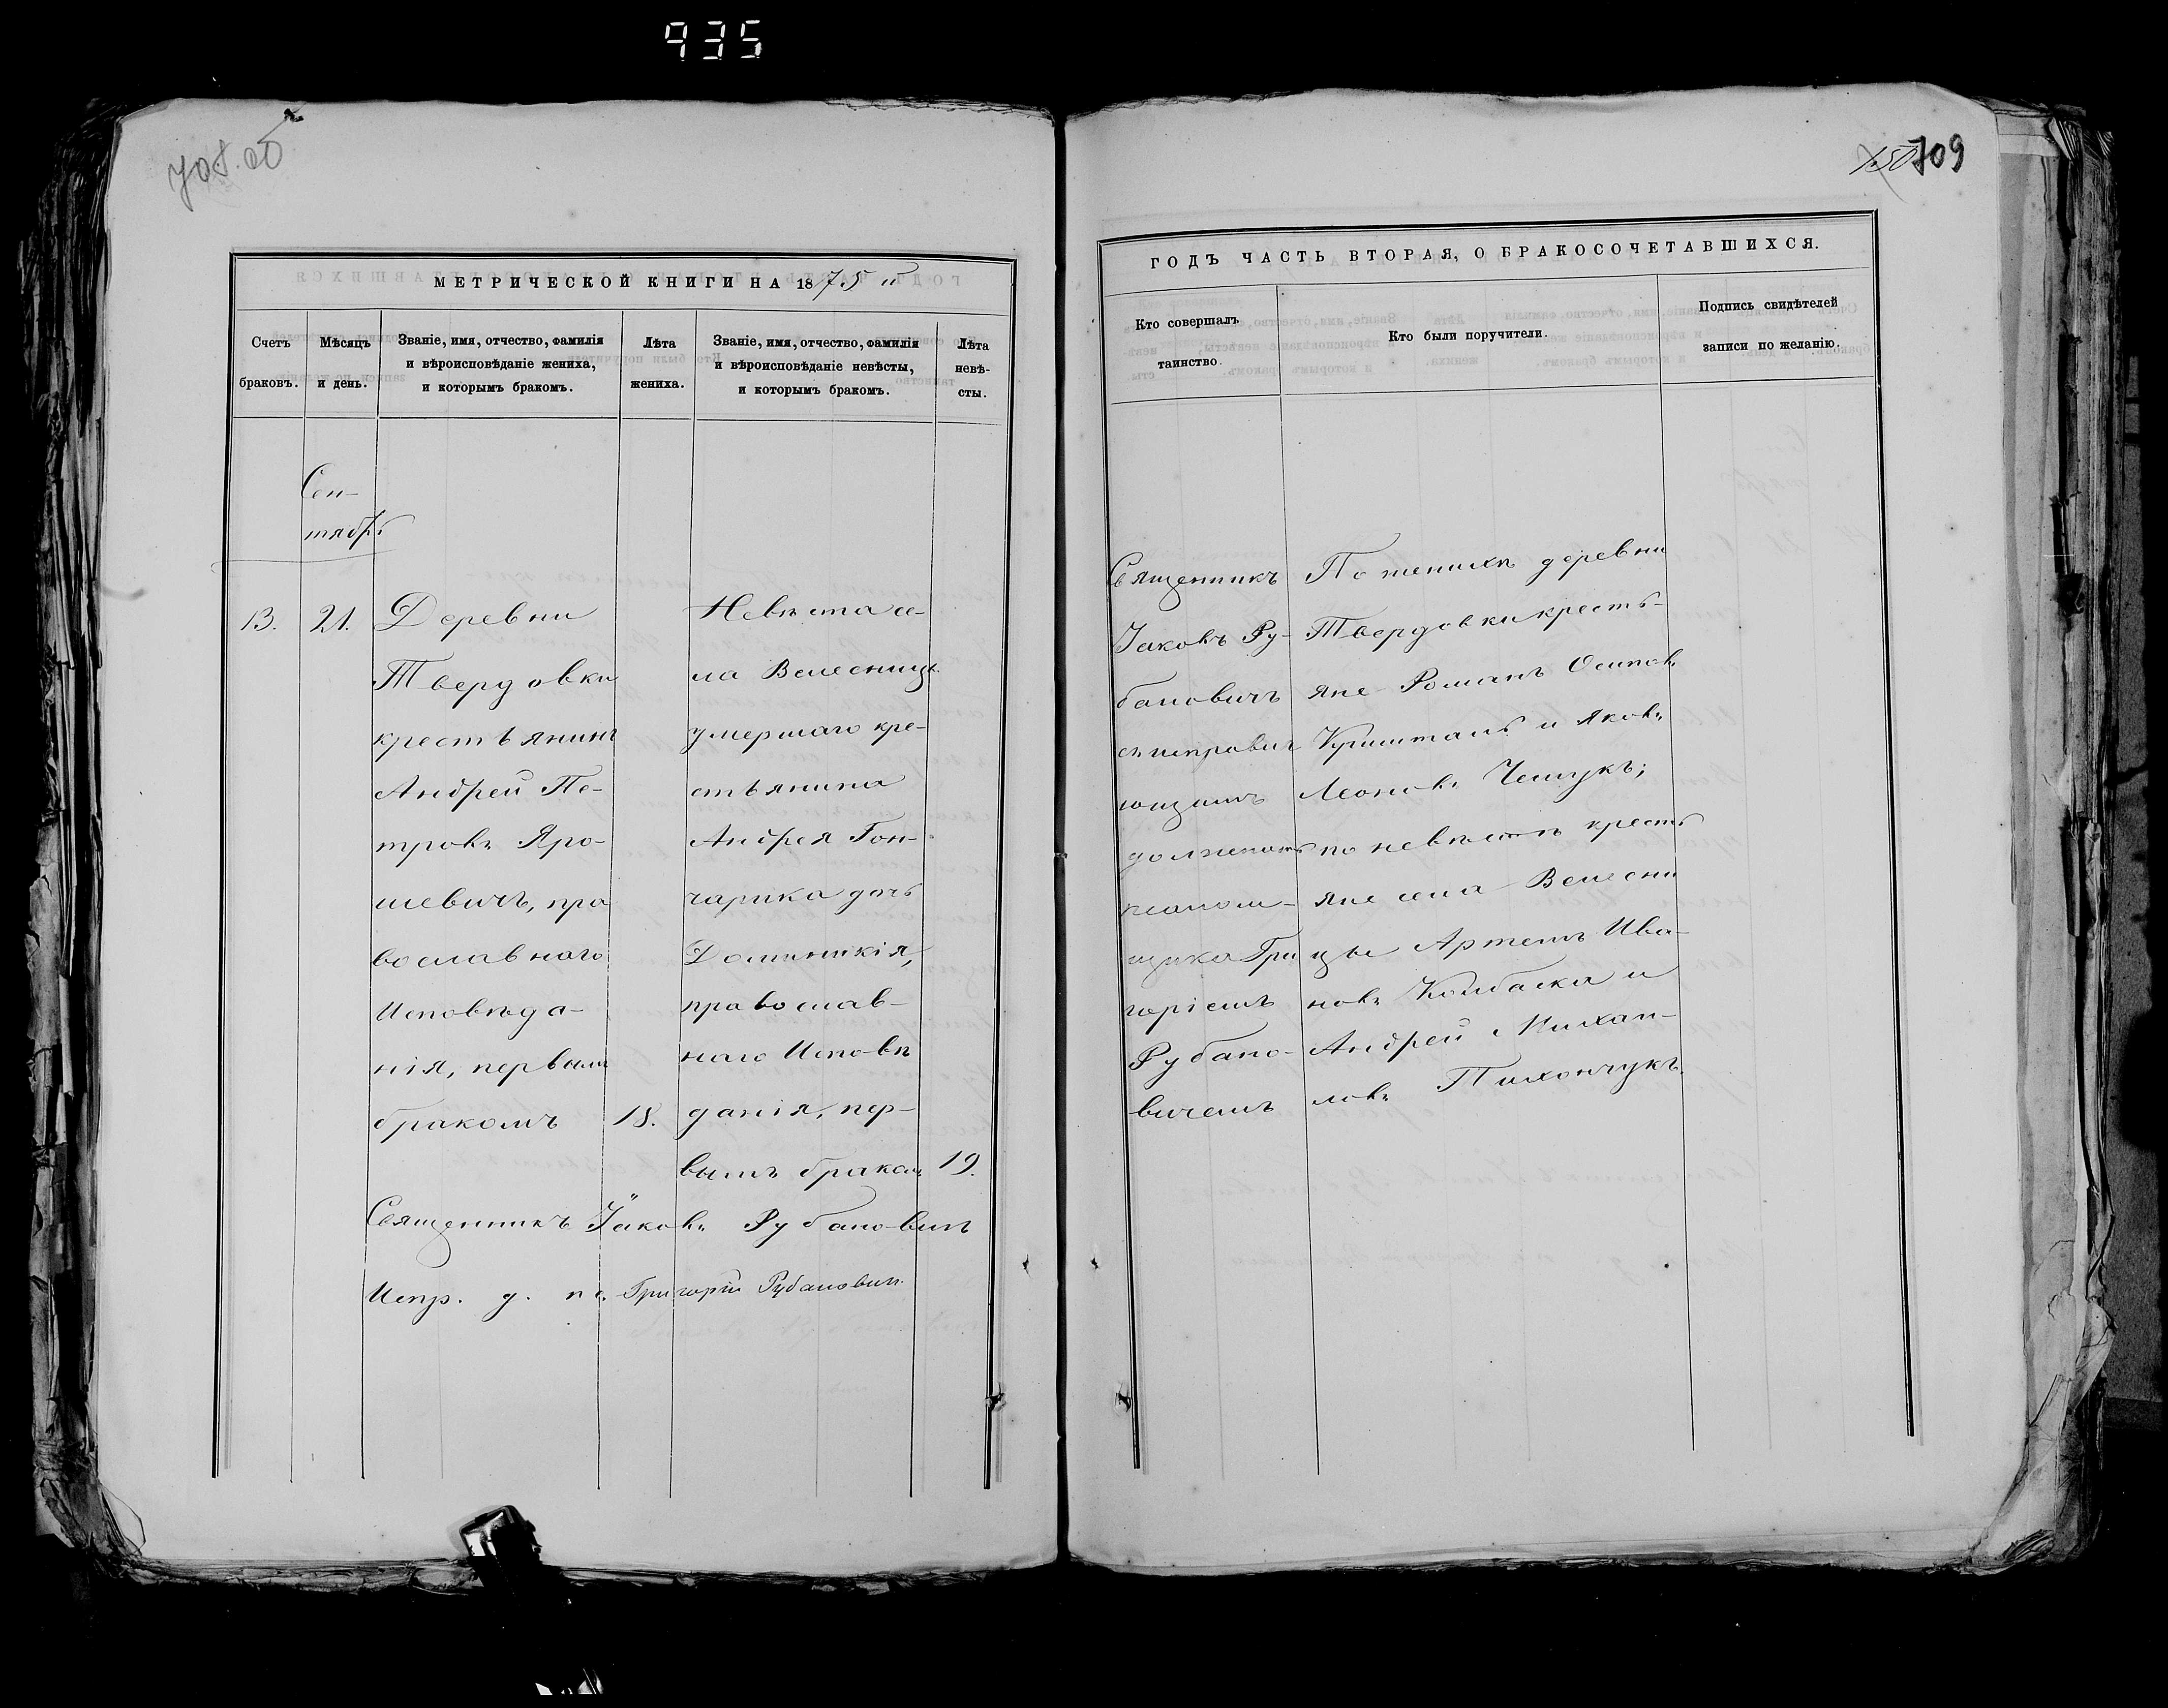 935
708 об
150 709
МЕТРИЧЕСКОЙ КНИГИ НА 1875 й
Счетъ
браковъ.
Мѣсяцъ
и день.
Званіе, имя, отчество, фамилія
и вѣроисповѣданіе жениха,
и которымъ бракомъ.
Лѣта
жениха.
Званіе, имя, отчество, фамилія
и вѣроисповѣданіе невѣсты,
и которымъ бракомъ.
Лѣта
невѣ-
сты.
Сен-
тябрь
13.
21.
Деревни
Твердовки
крестьянинъ
Андрей Пе-
тровъ Яро-
шевичъ, пра
вославнаго
Исповѣда-
нія, первымъ
бракомъ
18.
Невѣста се-
ла Велесницы
умершаго кре-
стьянина
Андрея Гон-
чарика дочь
Домникія,
православ-
наго Исповѣ
данія, пер-
вымъ бракомъ
19.
Священникъ Іаковъ Рубановичъ
Испр. д. пс. Григорій Рубановичъ
ГОДЪ ЧАСТЬ ВТОРАЯ, О БРАКОСОЧЕТАВШИХСЯ.
Кто совершалъ
таинство.
Кто были поручители.
Подпись свидѣтелей
записи по желанію.
Священникъ
Іаковъ Ру-
бановичъ
съ исправля
ющимъ
должность
псаломщ-
щика Гри
горіемъ
Рубано-
вичемъ
По женихѣ деревни
Твердовки кресть-
яне Романъ Осиповъ
и Яковъ
Леоновъ
по невѣстѣ кресть
яне села Велесни
цы Артемъ Ива-
новъ Колбаска и
Андрей Михаи-
ловъ Пилхончукъ.